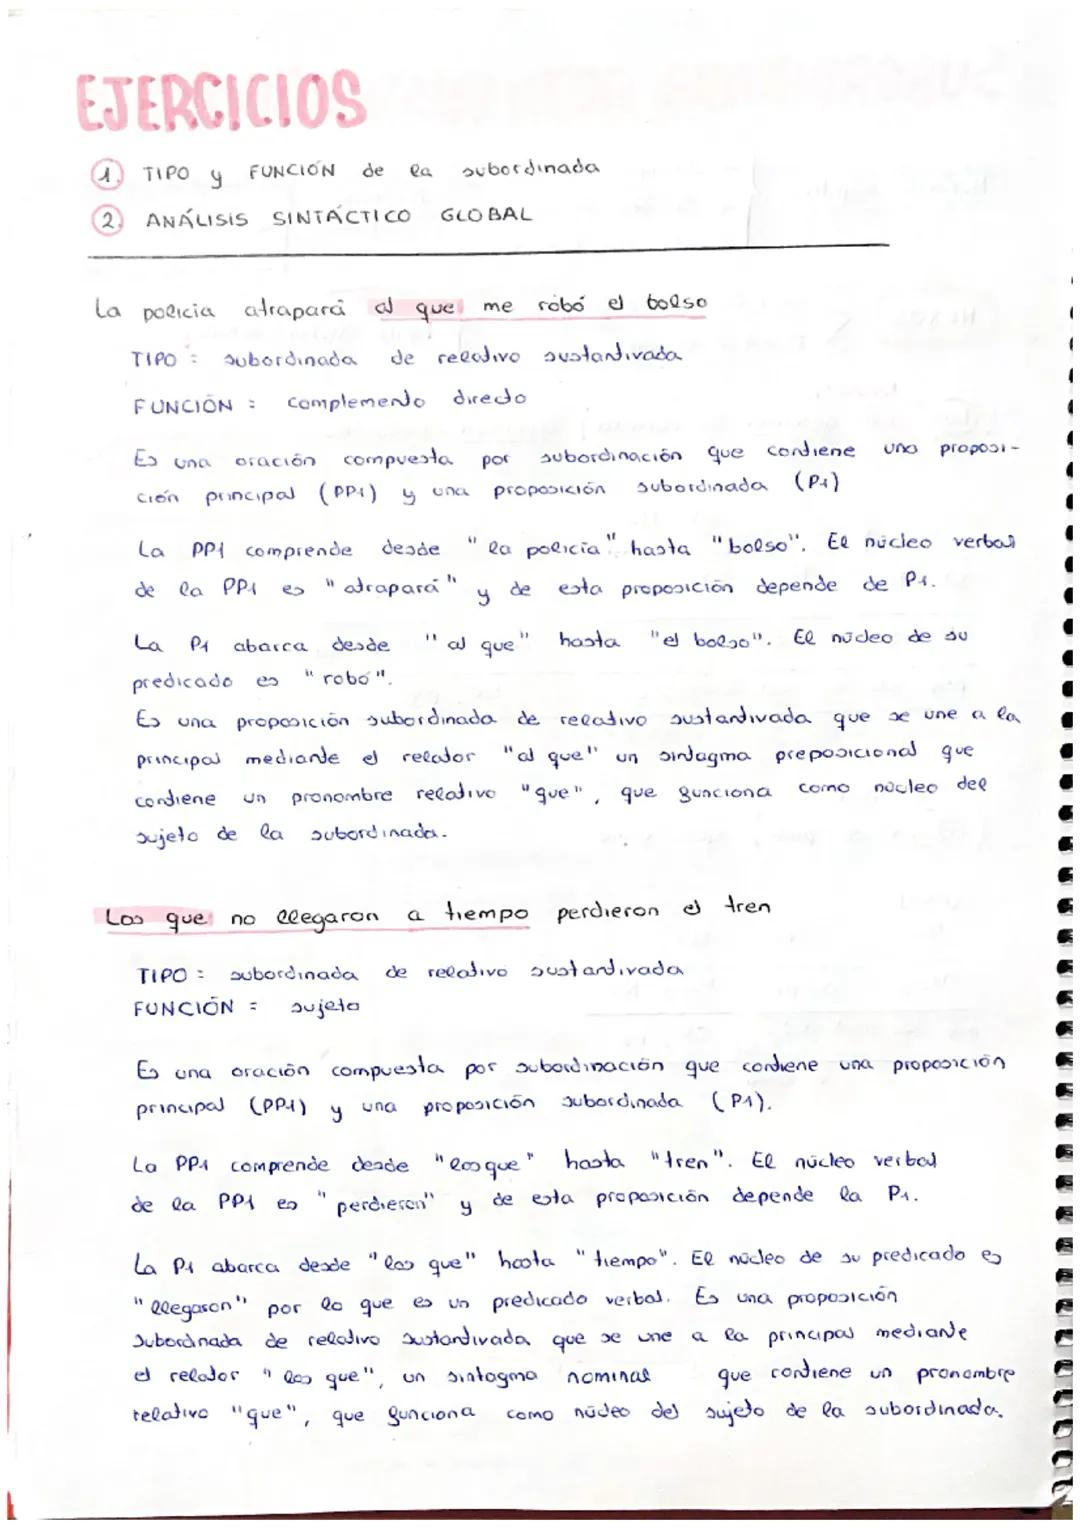 EJERCICIOS
1. TIPO y FUNCIÓN de la subordinada
2. ANÁLISIS SINTÁCTICO GLOBAL
La policia atrapará al que me robó el bolso
TIPO: subordinada de relativo sustantivada
FUNCIÓN: complemento directo
Es una oración compuesta por subordinación que contiene una proposi-
ción principal (PP1) y una proposición subordinada (P1)
La PP1 comprende desde "la policia" hasta "bolso". El núcleo verbal
de la PP1 es "atrapará" y de esta proposición depende de P1.
La P1 abarca desde "al que" hasta "el bolso". El núcleo de su
predicado es "robó".
Es una proposición subordinada de relativo sustantivada que se une a la
principal mediante el relator "al que" un sintagma preposicional que
contiene un pronombre relativo "que", que funciona como núcleo del
sujeto de la subordinada.
Los que no llegaron a tiempo perdieron el tren
TIPO: subordinada de relativo sustantivada
FUNCIÓN: sujeto
Es una oración compuesta por subordinación que contiene una proposición
principal (PP1) y una proposición subordinada (P1).
La PP1 comprende desde "los que" hasta "tren". El núcleo verbal
de la PP1 es "perdieron" y de esta proposición depende la P1.
La P1 abarca desde "los que" hasta "tiempo". El núcleo de su predicado es
"llegaron" por lo que es un predicado verbal. Es una proposición
subordinada de relativo sustantivada que se une a la principal mediante
el relator "los que", un sintagma nominal que contiene un pronombre
relativo "que", que funciona como núcleo del sujeto de la subordinada.